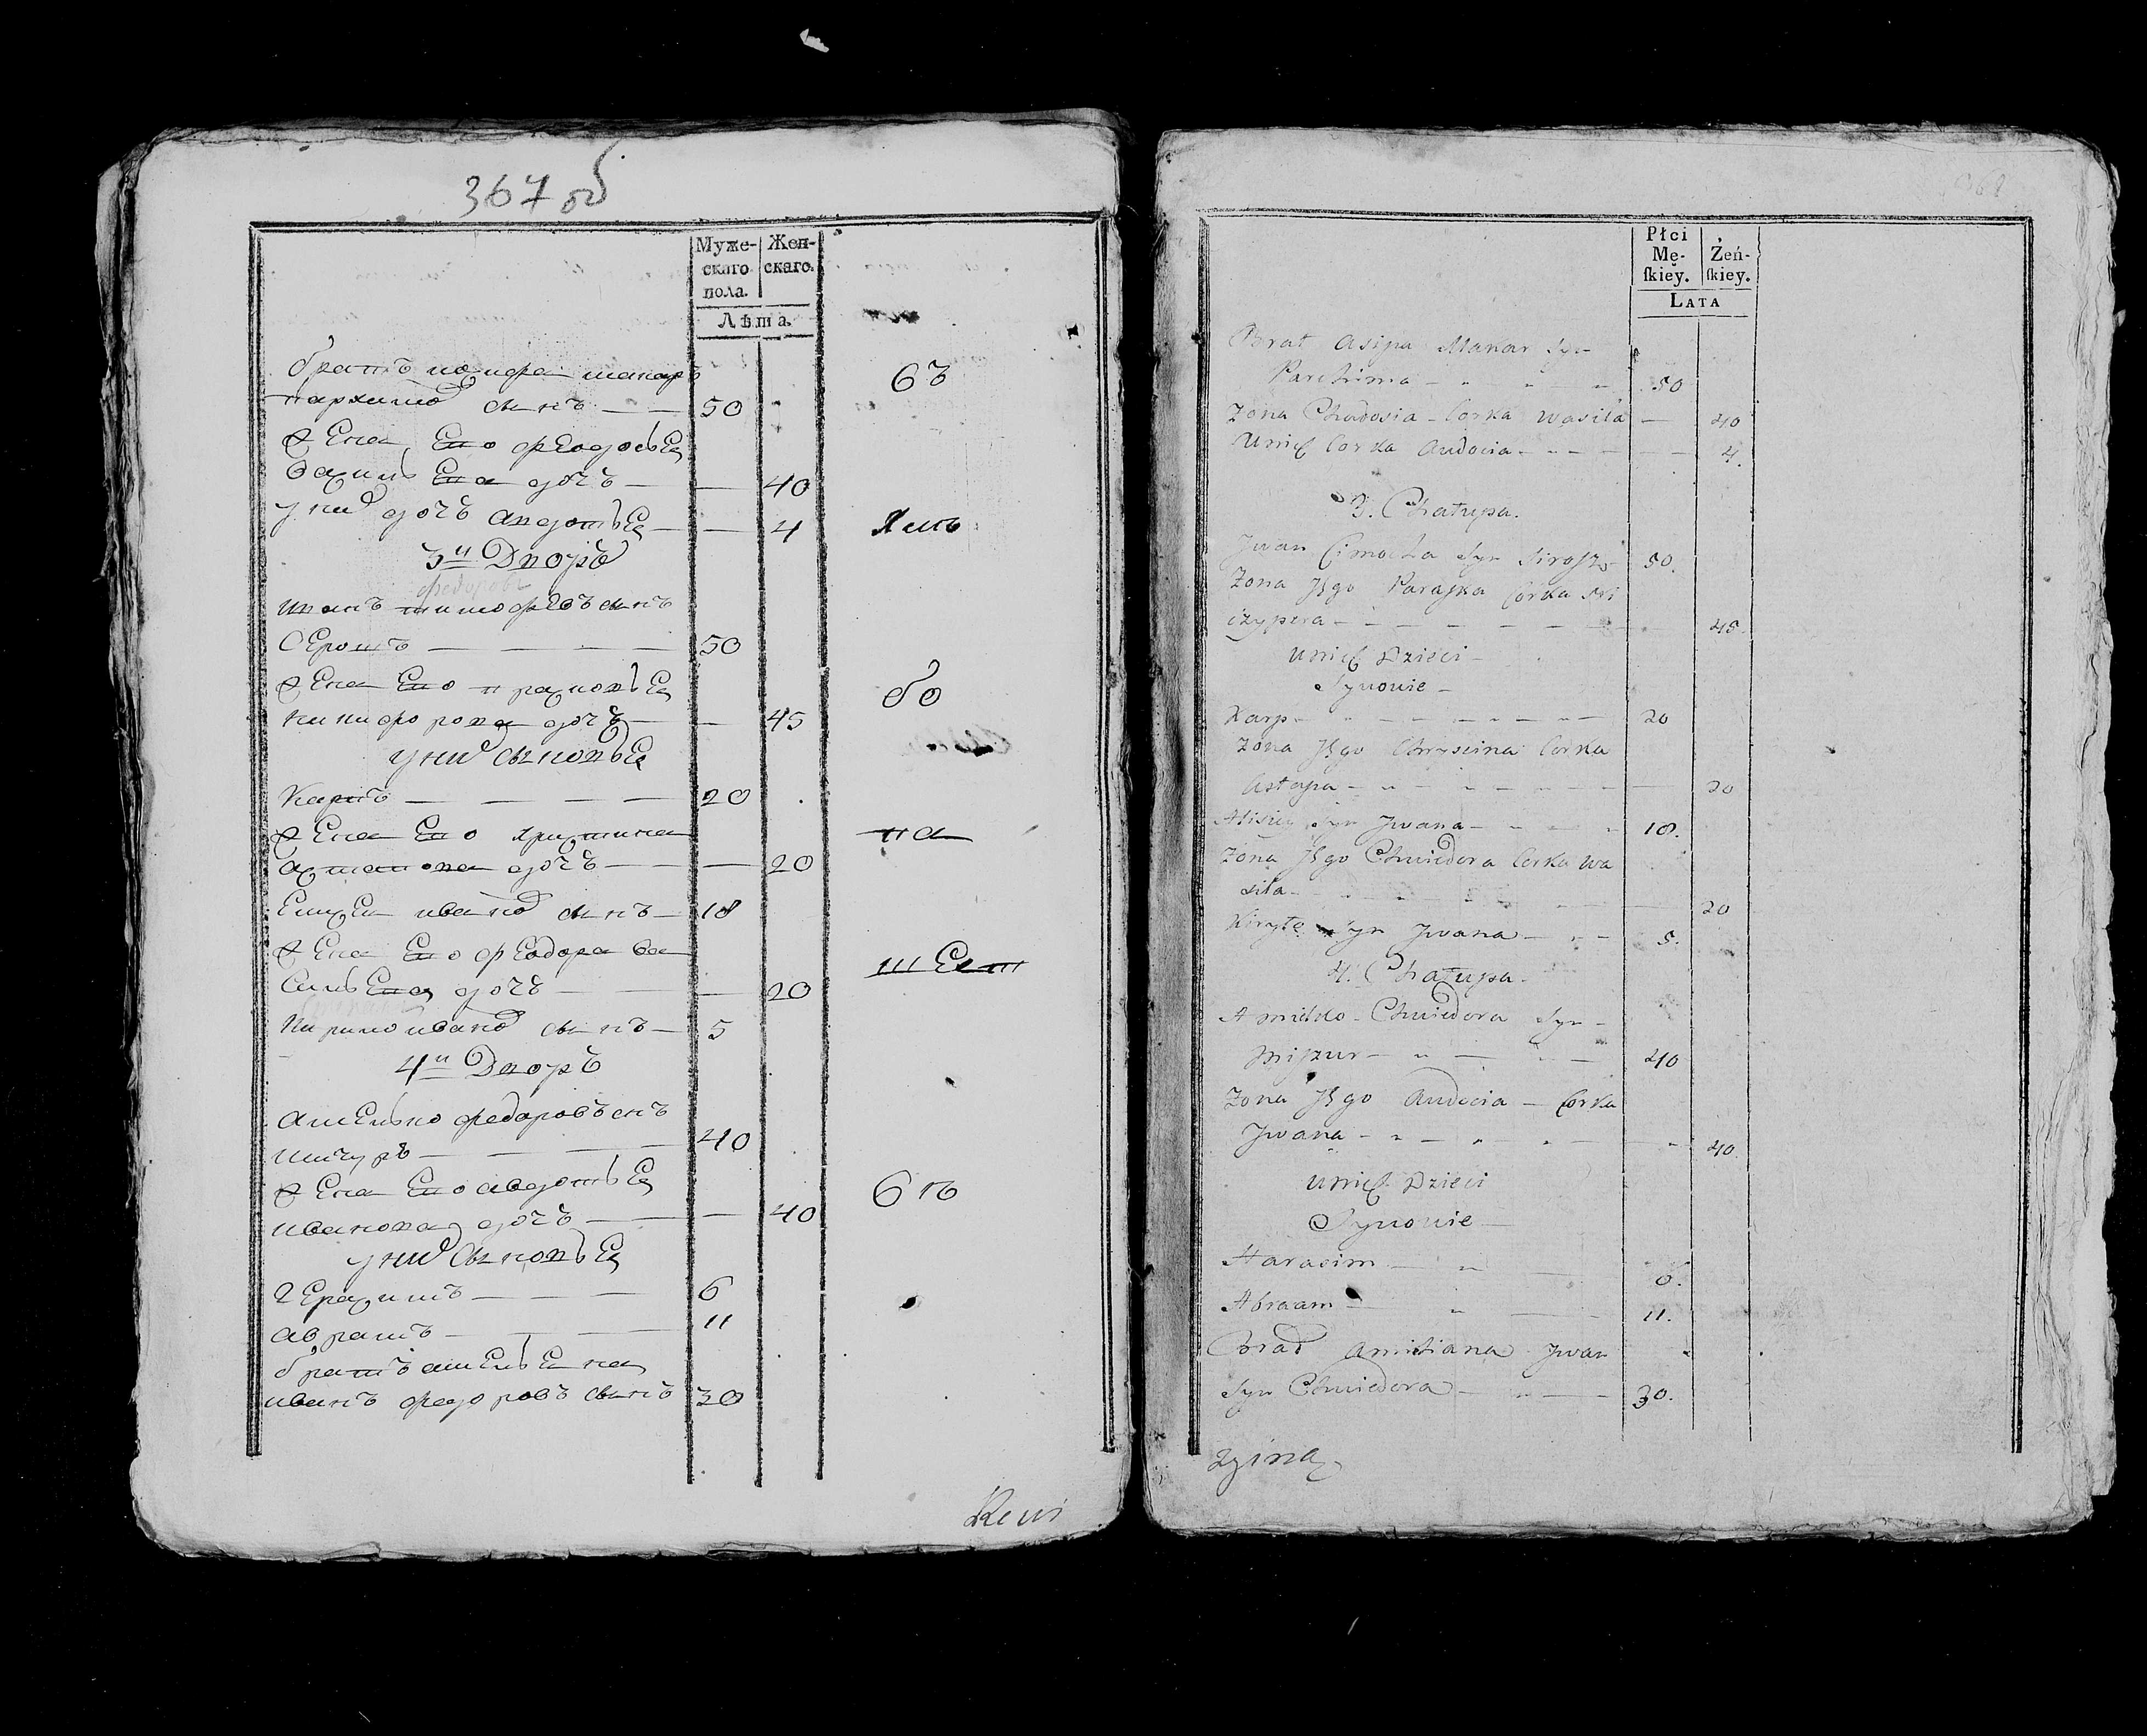 367 об
Муже-
скаго
пола.
Жен-
скаго.
Лѣта.
братъ макаръ
пархимов сынъ — — 50
жена Его феодосья
василь Ева дочъ — — 40
у них дочъ авдотья — — 4
3й Дворъ
федоровъ
иванъ тимофеевъ сынъ
Серошъ — — — — 50
жена Его прасковья
никифорова дочъ — — 45
у них сыновья
Карпъ — — — — 20
жена Его христина
астапова дочъ — — 20
Елисей иванов сынъ — 18
жена Его феодора ва
сильева дочъ — — — 20
Кирило иванов сынъ — 5
4й Дворъ
амелько федоровъ снъ
мичуръ — — — — 40
жена Его авдотья
иванова дочъ — — — 40
у них сыновья
герасимъ — — — 6
аврамъ — — — 11
братъ амельяна
иванъ федоровъ сынъ 30
въ
бо
на
шест
Реви
Płci
Mę-
skiey.
Żeń-
skiey.
LATA
Brat Asipa Makar Syn
Parchima — — — 50
Zona Chwdosia Corka Wasila — 40
Unich Corka Audocia — — — 4.
3. Chałupa.
Jwan Cimocha Syn Sirosz 50.
Zona Jego Paraska Corka Ni
czypera — — — — — 45.
Unich Dzieci
Synowie —
Karp — — — — — 20
Zona Jego Chryscina Corka
Astapa — — — — — 20
Alisiey Syn Jwana — — — 18.
Zona Jego Chwiedora Corka Wa
sila — — — — — 20
Kiryło Syn Jwana — — 5.
4. Chałupa.
Amielko Chwiedora Syn —
Miszur — — — — 40
Zona Jego Audocia — Corka
Jwana — — — — — 40.
Unich Dzieci
Synowie —
Harasim — — — 6.
Abraam — — — 11.
Brat Amiliana Jwan
Syn Chwiedora — — — 30.